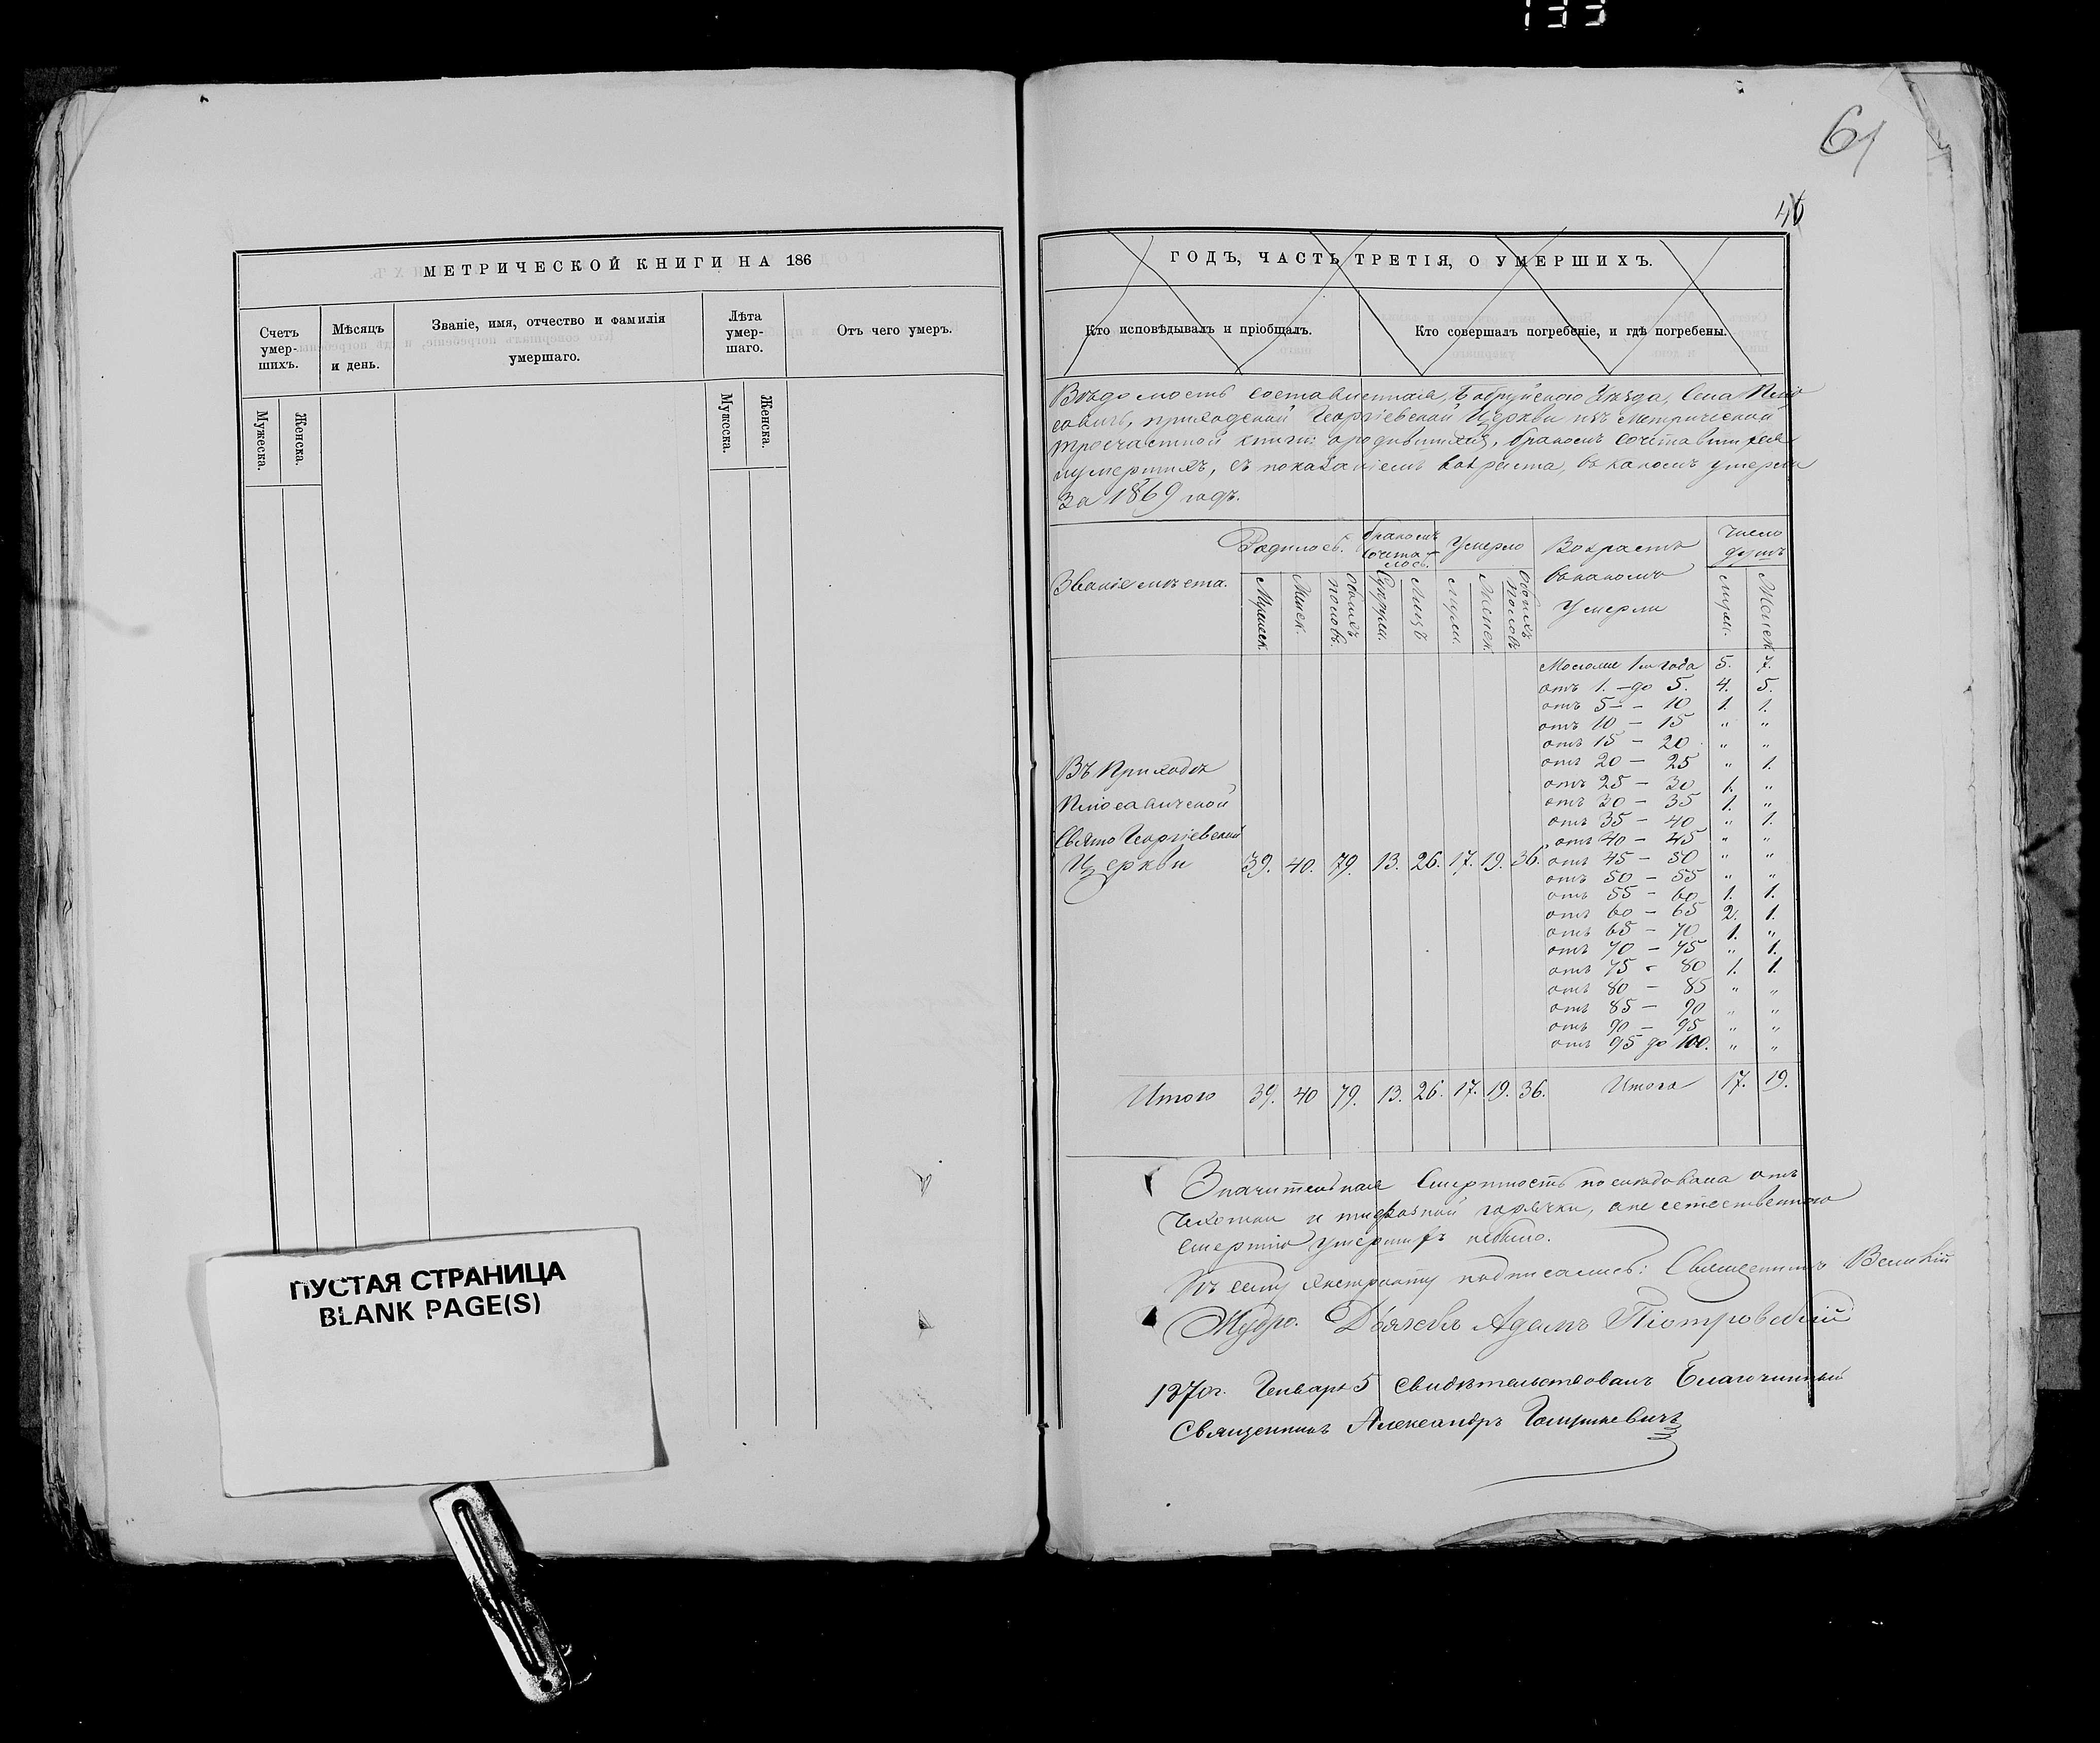 133
61
46
МЕТРИЧЕСКОЙ КНИГИ НА 186
Счетъ умер-шихъ.
Мѣсяцъ и день.
Званіе, имя, отчество и фамилія умершаго.
Лѣта умер-шаго.
Отъ чего умеръ.
Мужеска.
Женска.
Мужеска.
Женска.
ПУСТАЯ СТРАНИЦА
BLANK PAGE(S)
ГОДЪ, ЧАСТЬ ТРЕТІЯ, О УМЕРШИХЪ.
Кто исповѣдывалъ и пріобщалъ.
Кто совершалъ погребеніе, и гдѣ погребены.
Вѣдомость составленная, Бобруйскаго Уѣзда, Села
приходской Георгіевской Церкви изъ метрической
троечастной книги: ородившихся, бракомъ
иумершихъ, съ показаніемъ возраста, въ какомъ умерли
За 1869 годъ.
Званіе мѣста.
Родилось.
бракомъ сочеталось.
Умерло
Возрастъ въ какомъ Умерли
Число душъ
Мужеск.
Женск.
обоихъ половъ.
Супруж.
Лицъ
муж.
Женск.
Обоихъ половъ
муж.
Женск.
Моложе 1го года 5. 7.
отъ 1. – до 5. 4. 5.
отъ 5 – – 10 1. 1.
отъ 10 – 15 " "
отъ 15 – 20 " "
отъ 20 – 25 " 1.
отъ 25 – 30 1. "
отъ 30 – 35 1. "
отъ 35 – 40 " 1.
отъ 40 – 45 " "
отъ 45 – 50 " "
отъ 50 – 55 " "
отъ 55 – 60 1. 1.
отъ 60 – 65 2. 1.
отъ 65 – 70 1. "
отъ 70 – 75 " 1.
отъ 75 – 80 1. 1.
отъ 80 – 85 " "
отъ 85 – 90 " "
отъ 90 – 95 " "
отъ 95 до 100. " "
Въ Приходѣ
Свято Георгіевской
Церкви 39. 40. 79. 13. 26. 17. 19. 36.
Итого 39. 40 79. 13. 26. 17. 19. 36. Итого 17. 19.
Значительная Смертность послѣдовала отъ
чахотки и тифозной горячки, а не естественною
смертію умершихъ небыло.
Къ сему экстракту подписались: Священникъ
Мудро. Дьячекъ Адамъ Піотровскій
1870г. Генваря 5 Свидѣтельствовалъ Благочинный
Священникъ Александръ